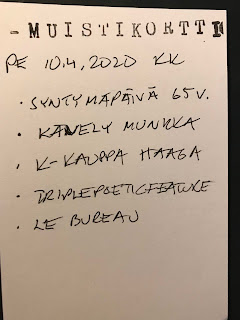 - MUISTIKORTTI
PE 10.4.2020 KK
· SYNTYMÄPÄIVÄ 65 V.
· KÄVELY MUNKKA
· K-KAUPPA HAAGA
· TRIPLEPOETICFEATURE
· LE BUREAU